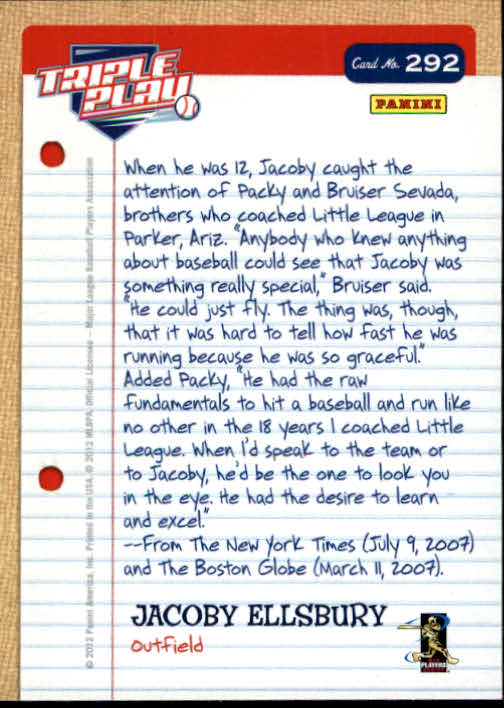 TRIPLE
PLAY
Card No. 292
PANINI
When he was 12, Jacoby caught the
attention of Packy and Bruiser Sevada,
brothers who coached Little League in
Parker, Ariz. "Anybody who knew anything
about baseball could see that Jacoby was
something really special," Bruiser said.
"He could just fly. The thing was, though,
that it was hard to tell how fast he was
running because he was so graceful."
Added Packy, "He had the raw
fundamentals to hit a baseball and run like
no other in the 18 years I coached Little
League. When I'd speak to the team or
to Jacoby, he'd be the one to look you
in the eye. He had the desire to learn
and excel."
--From The New York Times (July 9, 2007)
and The Boston Globe (March 11, 2007).
JACOBY ELLSBURY
Outfield
© 2012 Panini America, Inc. Printed in the USA. © 2012 MLBPA, Official Licensee – Major League Baseball Players Association
PLAYERS